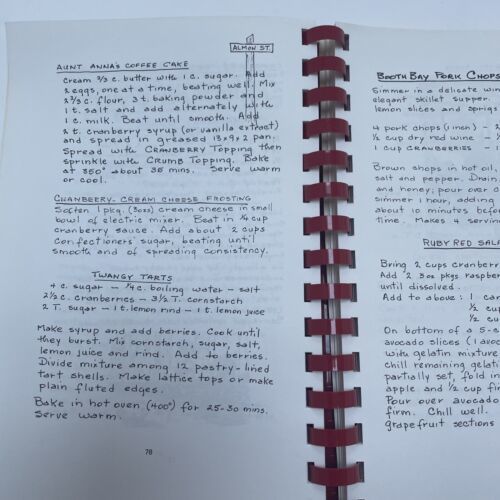 ALMON ST.
AUNT ANNA'S COFFEE CAKE
Cream 2/3 c. butter with 1 c. sugar. Add
2 eggs, one at a time, beating well. Mix
2 2/3 c. flour, 3 t. baking powder and
1 t. salt and add alternately with
1 c. milk. Beat until smooth. Add
2 t. cranberry syrup (or vanilla extract)
and spread in greased 13x9x2 pan.
Spread with CRANBERRY TOPPING then
sprinkle with CRUMB TOPPING. Bake
at 350° about 35 mins. Serve warm
or cool.
CRANBERRY-CREAM CHEESE FROSTING
Soften 1 pkg. (3ozs) cream cheese in small
bowl of electric mixer. Beat in 1/4 cup
cranberry sauce. Add about 2 cups
confectioners' sugar, beating until
smooth and of spreading consistency.
TWANGY TARTS
4 c. sugar - 1/4 c. boiling water - salt
2 1/2 c. cranberries - 3 1/2 T. cornstarch
2 T. sugar - 1 t. lemon rind - 1 t. lemon juice
Make syrup and add berries. Cook until
they burst. Mix cornstarch, sugar, salt,
lemon juice and rind. Add to berries.
Divide mixture among 12 pastry-lined
tart shells. Make lattice tops or make
plain fluted edges.
Bake in hot oven (400°) for 25-30 mins.
Serve warm.
70
BOOTH BAY PORK CHOPS
Simmer in a delicate win
elegant skillet supper.
lemon slices and sprigs
4 pork chops (1 inch) -
1/2 cup dry red wine -
1 cup CRANBERRIES -
Brown chops in hot oil,
salt and pepper. Drain
and honey; pour over c
simmer 1 hour, adding
about 10 minutes befor
time. Makes 4 servin
RUBY RED SALA
Bring 2 cups cranberr
Add 2 3oz pkgs raspber
until dissolved.
Add to above: 1 ca
1/2 cup
1/2 cu
On bottom of a 5-c
avocado slices (1 avoc
with gelatin mixture
chill remaining gelati
partially set, fold in
apple and 1/2 cup fin
Pour over avocado
firm. Chill well.
grapefruit sections